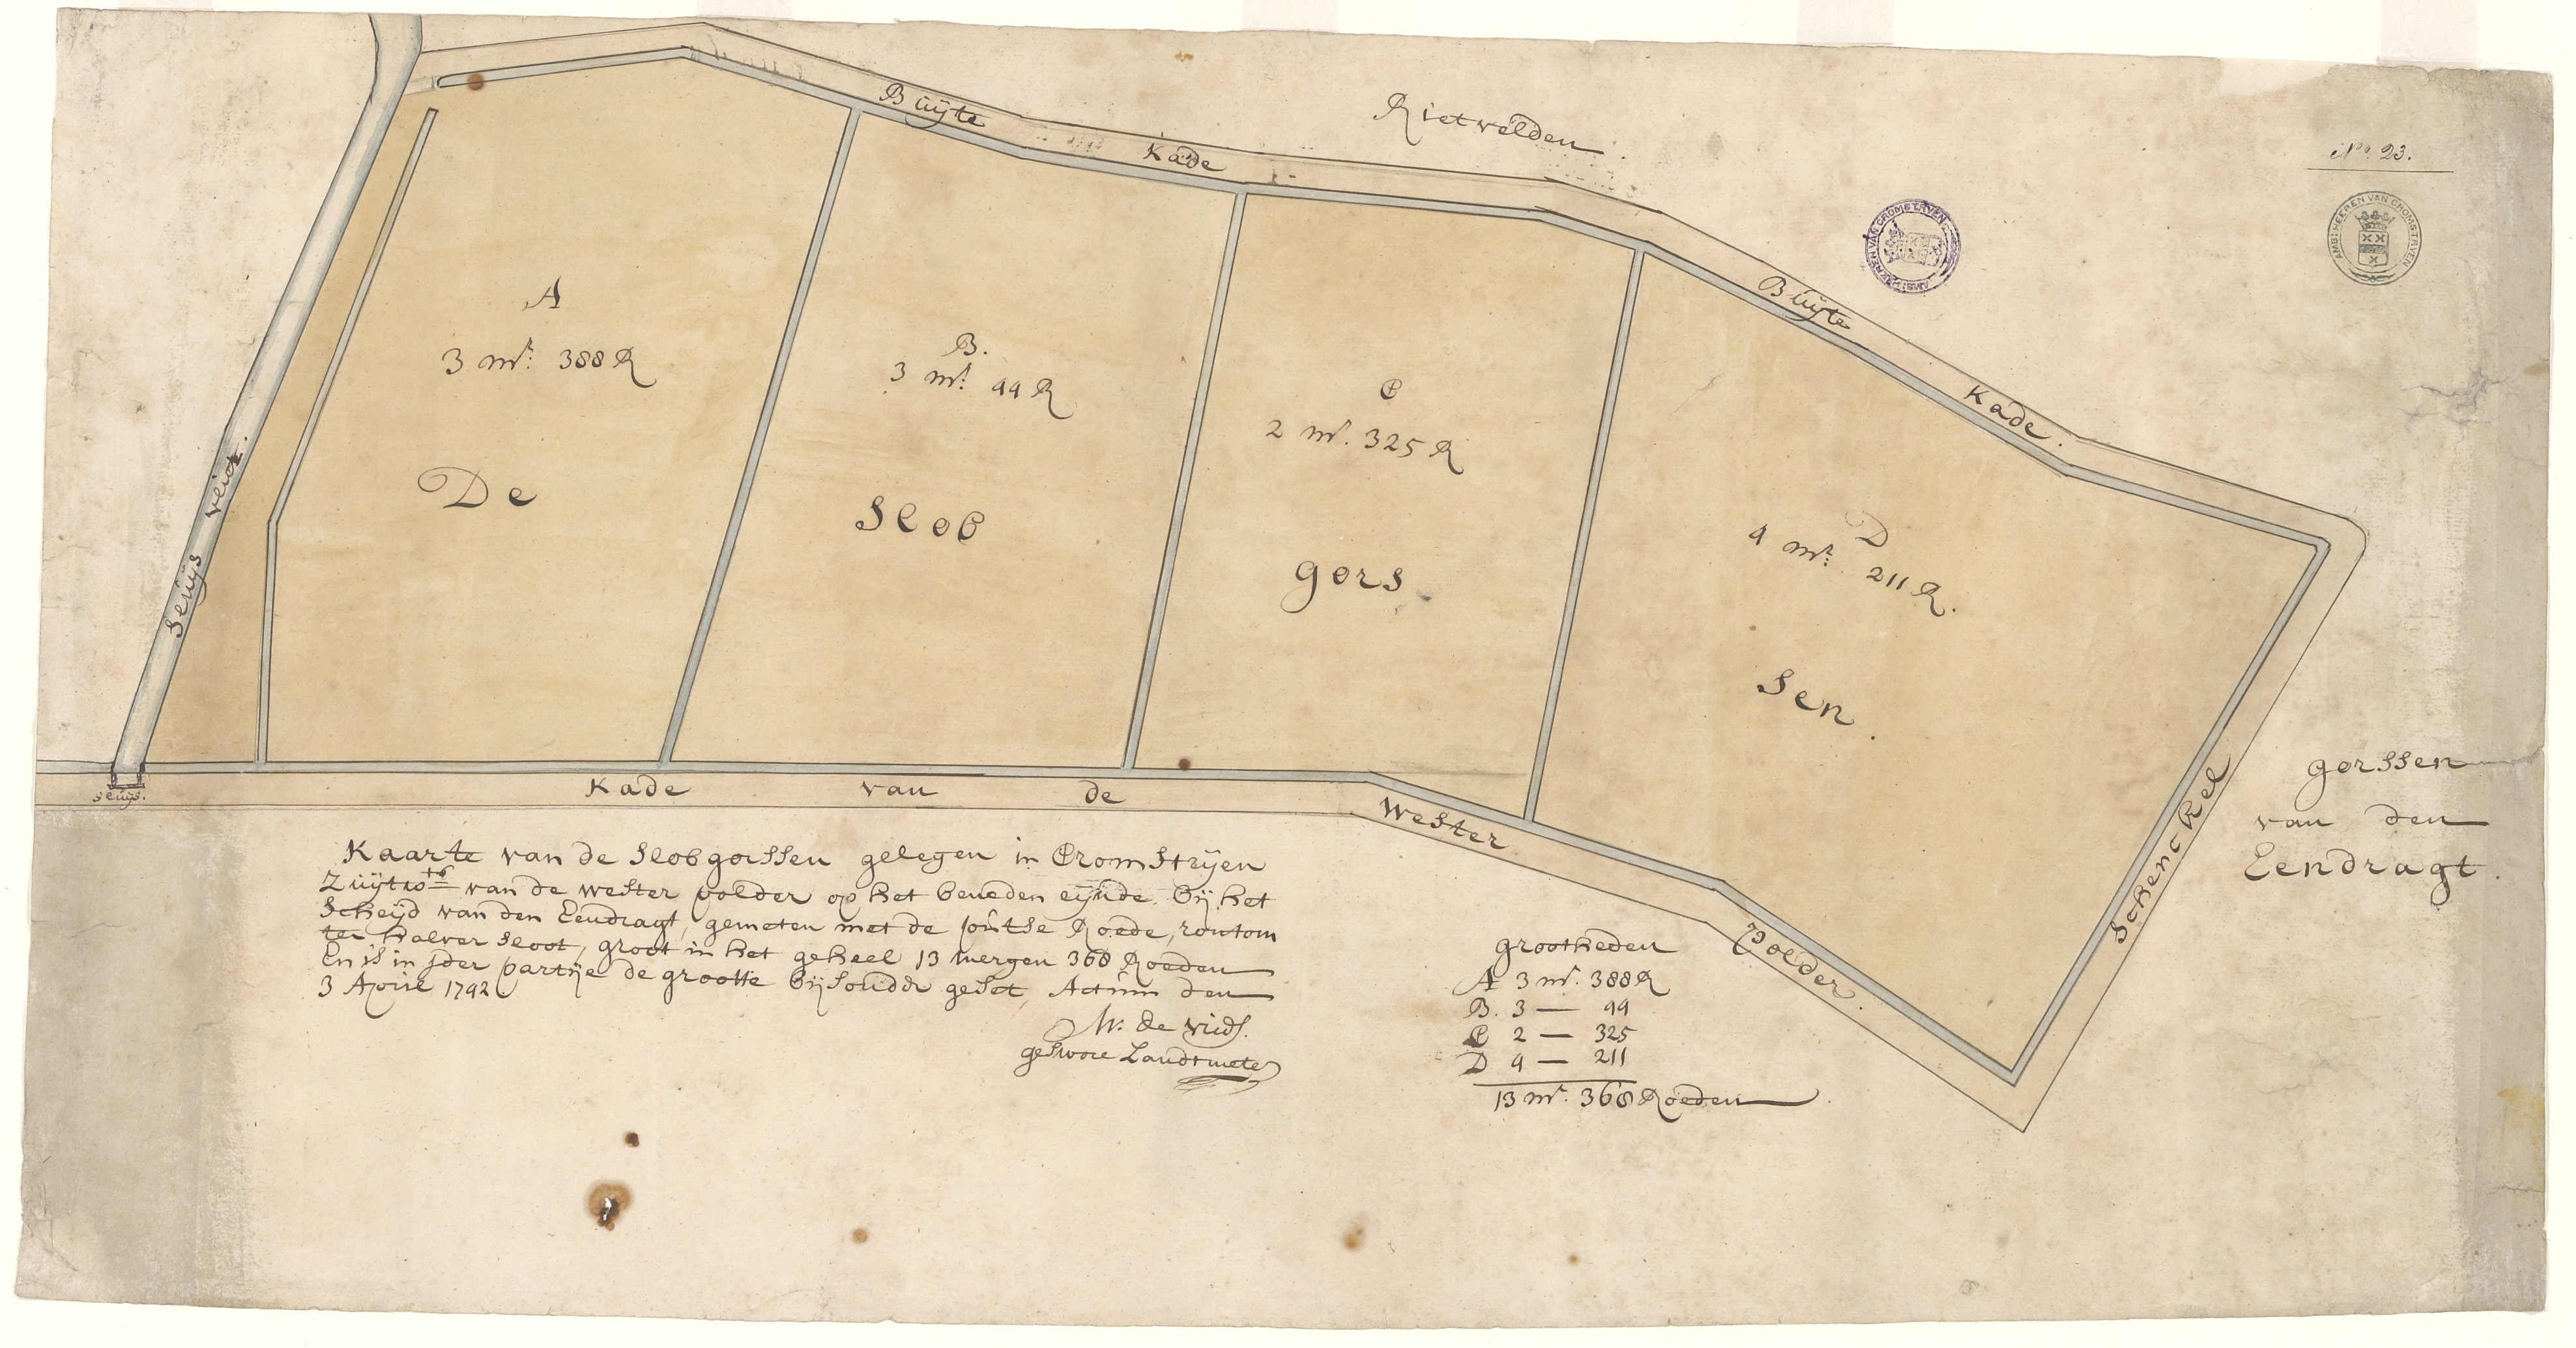 Rietvelden.
No. 23.
AMB: HEEREN VAN CROMSTRYEN
AMB: HEEREN VAN CROMSTRYEN
Buÿte Kade
Buÿte Kade.
Sluÿs vliet.
A
3 mr: 388 R
B.
3 mr: 44 R
C
2 mr. 325 R
D
4 mr: 211 R.
De Slob gors sen.
sluÿs.
Kade van de Wester Polder.
Schenckel
gorssen
van den
Eendragt.
Kaarte van de Slobgorssen gelegen in Cromstrÿen
van de wester polder op het beneden eÿnde bÿ het
Scheÿd van den Eendragt, gemeten met de Roede, rontom
ter halver Sloot, groot in het geheel 13 mergen 368 Roeden
En is in jder partÿe de grootte bÿsonder geset, Actum den
3 April 1742
de Vries.
geswore Landtmeter
grootheden
A 3 mr. 388 R
B. 3 — 44
C 2 — 325
D 4 — 211
13 mr. 368 Roeden